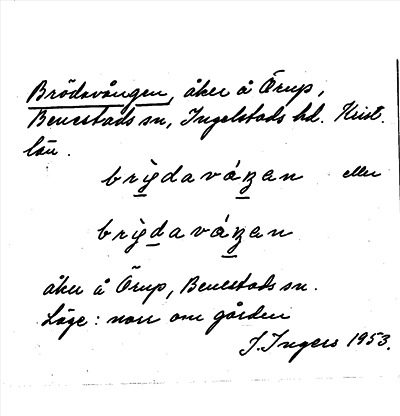 Brödavången, åker å Örup,
Benestads sn, Ingelstads hd. Krist.
län.
brỳdaváŋan eller
brỳdaváŋan
åker å Örup, Benestads sn.
Läge: norr om gården
I. Ingers 1953.